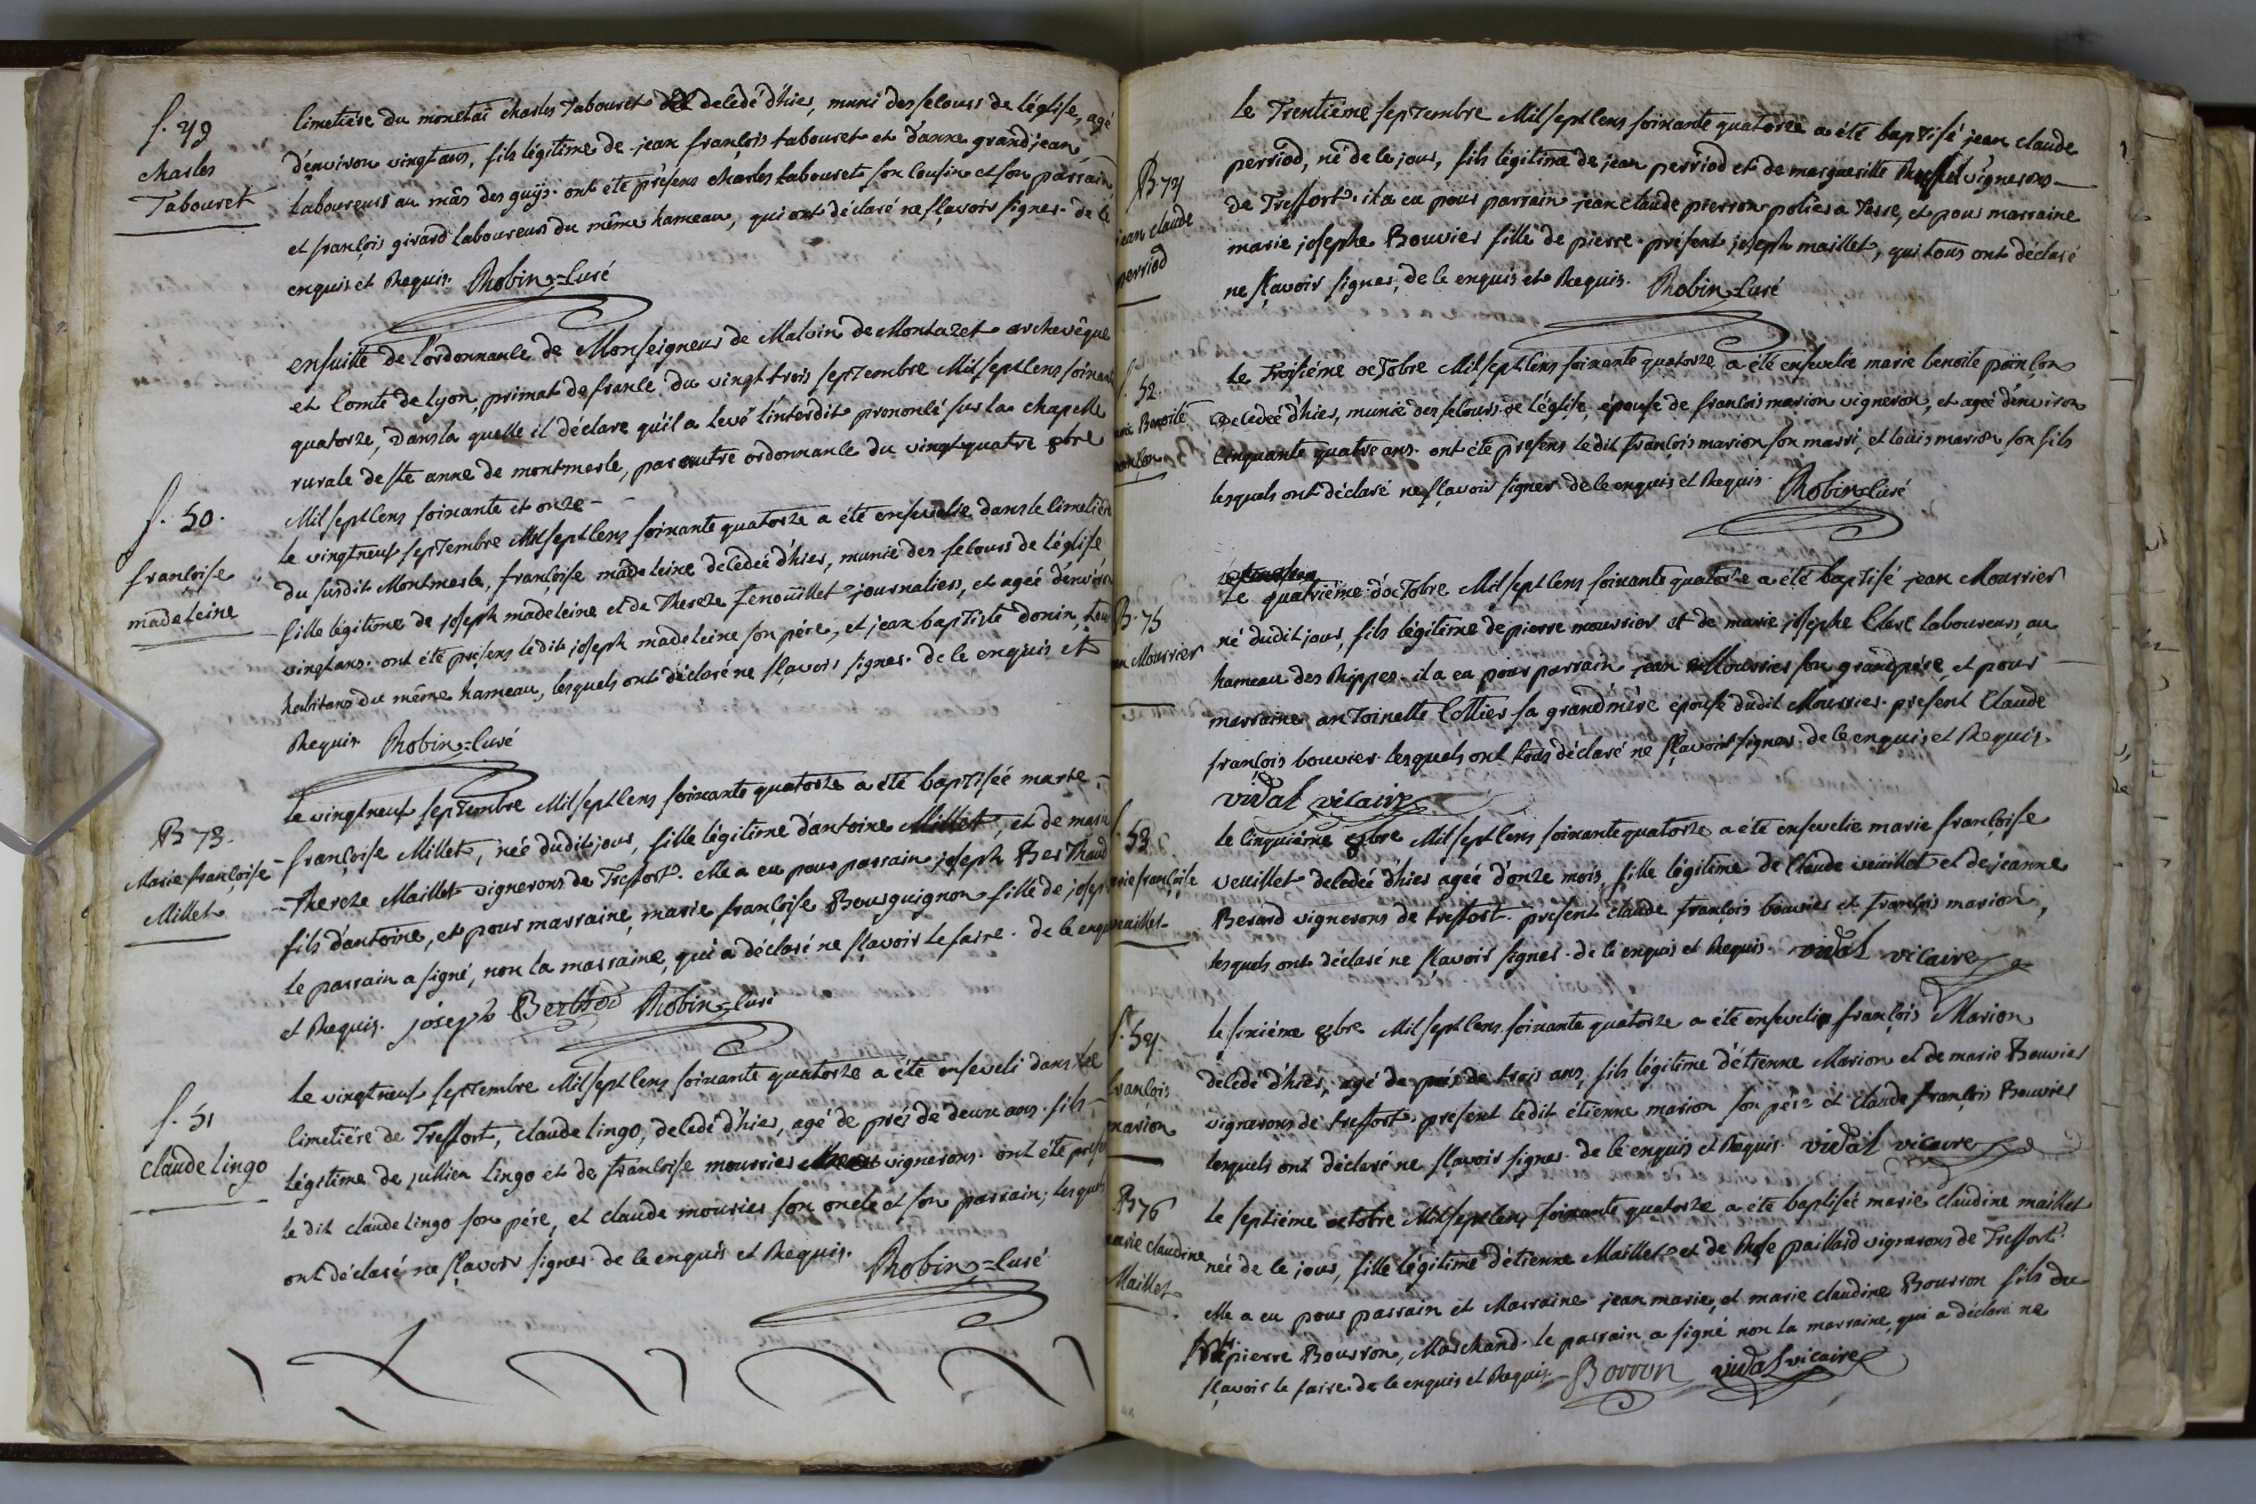 S. 49
charles
Tabouret
Cimetiére du monetai charles Tabouret decedé d'hier, muni des secours de l'église, agé
d'environ vingt ans, fils légitime de jean françois tabouret et d'anne grandjean
laboureurs au mâs des guÿs. ont été présens charles tabouret son cousin et son parrain
et françois girard laboureur du même hameau, qui ont déclaré ne sçavoir signer. de ce
enquis et Requis. Robin=Curé
ensuitte de l'ordonnance de Monseigneur de Malvin de Montazet archevêque
et Comte de Lyon, primat de france du vingt trois septembre Mil sept cens soixante
quatorze, Dans la quelle il déclare qu'il a levé l'interdit prononcé sur la chapelle
rurale de ste anne de montmerle, par autre ordonnance du vingt quatre 8bre
Mil sept cens soixante et onze –
S. 50.
françoise
madeleine
le vingt neuf septembre Mil sept cens soixante quatorze a été ensevelie dans le cimetiére
du susdit Montmerle, françoise madeleine decedée d'hier, munie des secours de l'église
fille légitime de joseph madeleine et de Thereze fenoüillet journaliers, et agée d'environ
vingt ans. ont été présens ledit joseph madeleine son pére, et jean baptiste donin, tous
habitans du même hameau, lesquels ont déclaré ne sçavoir signer. de ce enquis et
Requis. Robin=Curé
B 73.
Marie françoise
Millet
le vingt neuf septembre Mil sept cens soixante quatorze a été baptisée marie –
françoise Millet, née dudit jour, fille légitime d'antoine Millet, et de marie
Thereze Maillet vignerons de Treffort. elle a eu pour parrain joseph Berthaud
fils d'antoine, et pour marraine, marie françoise Bourguignon fille de joseph
le parrain a signé, non la marraine, qui a déclaré ne sçavoir le faire. de ce enquis
et Requis. joseph Berthod Robin=Curé
S. 51
Claude Lingo
le vingt neuf septembre Mil sept cens soixante quatorze a été enseveli dans le
Cimetiére de Treffort, claude Lingo, decedé d'hier, agé de prés de deux ans. fils –
légitime de jullien Lingo et de françoise mourrier vignerons. ont été présens
le dit claude Lingo son pére, et claude mourier son oncle et son parrain; lesquels
ont déclaré ne sçavoir signer. de ce enquis et Requis. Robin=Curé
B 74
jean claude
perriod
le Trentième septembre Mil sept cens soixante quatorze a été baptisé jean claude
perriod, né de ce jour, fils légitime de jean perriod et de marguerite vignerons –
de Treffort. il a eu pour parrain jean claude pierron potier a Terre, et pour marraine
marie josephe Bouvier fille de pierre. présent joseph maillet, qui tous ont déclaré
ne sçavoir signer, de ce enquis et Requis. Robin Curé
S. 52.
marie Benoite
poinçon
le Troisiéme octobre Mil sept cens soixante quatorze a été ensevelie marie benoite poinçon
decedée d'hier, munie des secours de l'église, épouse de françois marion vigneron, et agée d'environ
Cinquante quatre ans. ont été présens ledit françois marion son marri, et loüis marion son fils
lesquels ont déclaré ne sçavoir signer de ce enquis et Requis. Robin Curé
B. 75
jean Mourrier
le quatriéme d'octobre Mil sept cens soixante quatorze a été baptisé jean Mourrier
né dudit jour, fils légitime de pierre mourrier et de marie josephe Clerc laboureurs au
hameau des Rippes. il a eu pour parrain jean Mourrier son grand pére, et pour –
marraine antoinette Cottier sa grand mére épouse dudit Mourrier. présent Claude
françois bouvier. lesquels ont tous déclaré ne sçavoir signer. de ce enquis et Requis.
vidal vicaire
S. 53
marie françoise
veuillet
le Cinquiéme 8bre Mil sept cens soixante quatorze a été ensevelie marie françoise
veuillet decedée d'hier agée d'onze mois, fille légitime de Claude veuillet et de jeanne
Berard vignerons de treffort. présent claude françois bouvier et françois marion,
lesquels ont déclaré ne sçavoir signer. de ce enquis et Requis. vidal vicaire
S. 54.
françois
marion
le sixiéme 8bre Mil sept cens soixante quatorze a été enseveli françois Marion
decedé d'hier, agé de prés de trois ans, fils légitime d'étienne Marion et de marie Bouvier
vignerons de treffort. présent ledit étienne marion son pére et claude françois Bouvier
lesquels ont déclaré ne sçavoir signer. de ce enquis et Requis. vidal vicaire
B 76
marie claudine
Maillet
le septiéme octobre Mil sept cens soixante quatorze a été baptisée marie claudine maillet
née de ce jour, fille légitime d'étienne Maillet et de Rose paillard vignerons de Treffort.
elle a eu pour parrain et Marraine jean marie, et marie claudine Bourron fils du
Sr pierre Bourron, Marchand. le parrain a signé non la marraine, qui a déclaré ne
sçavoir le faire. de ce enquis et Requis – Borron vidal vicaire